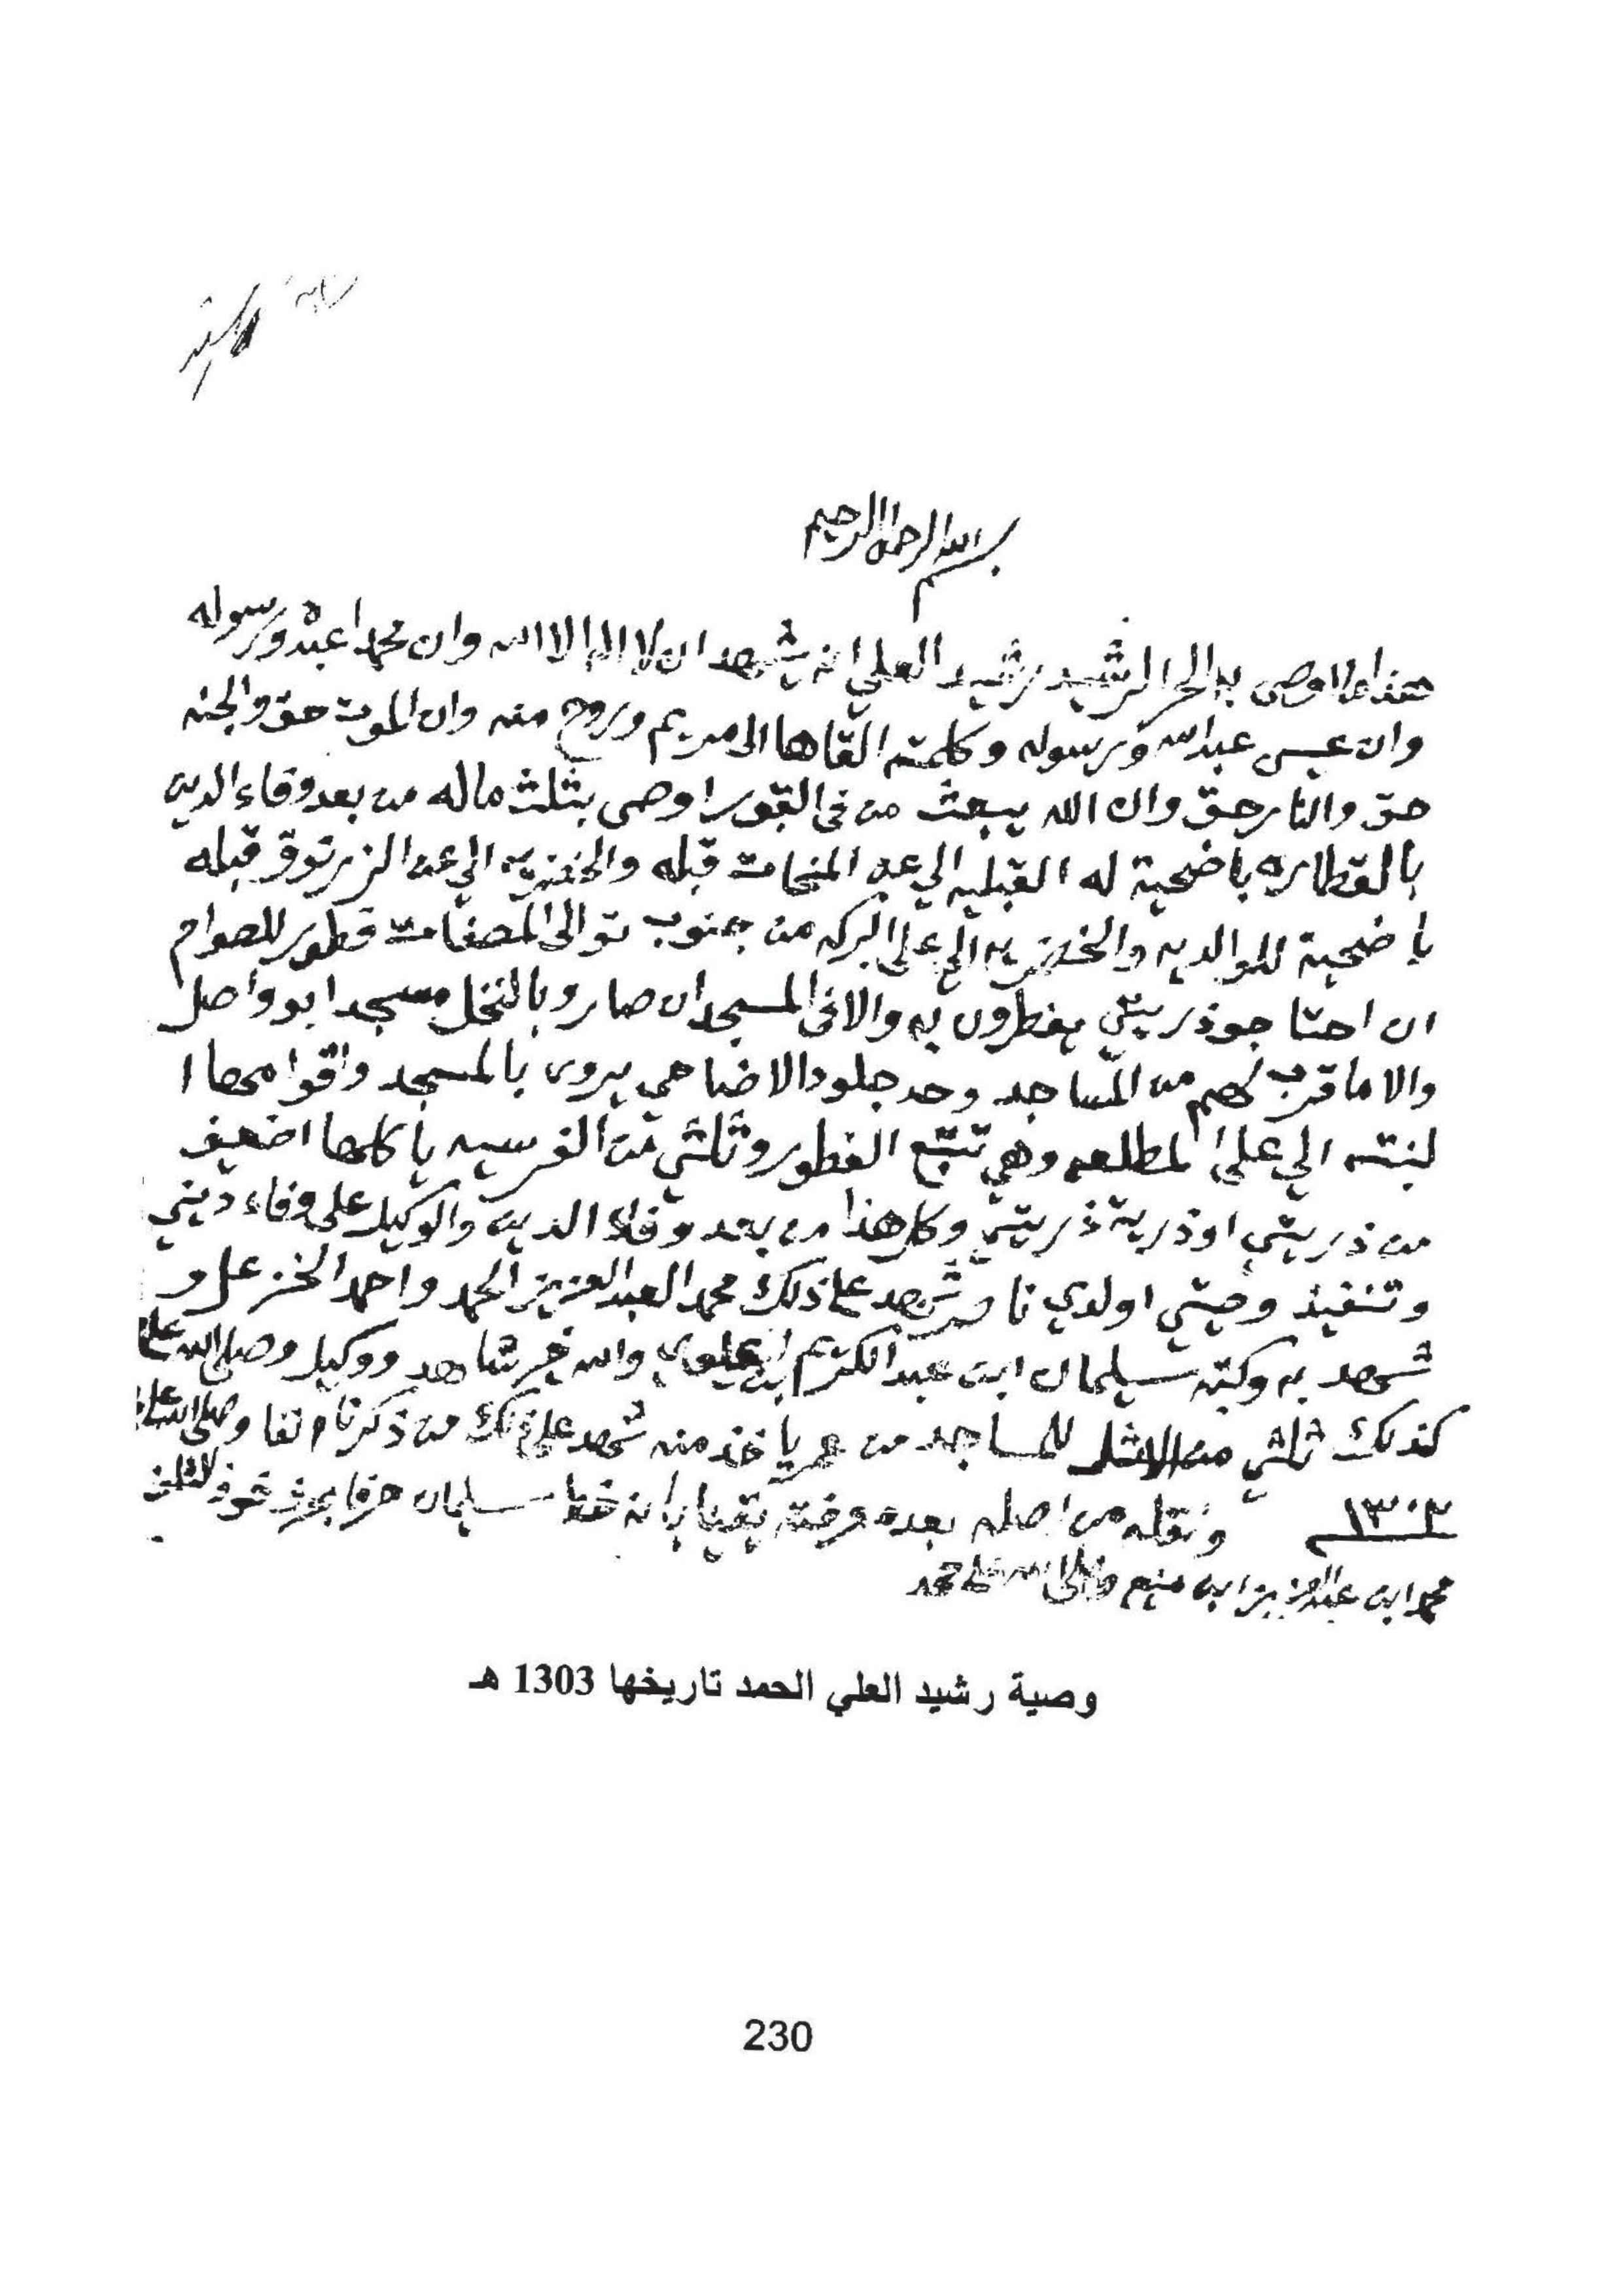 بسم الله الرحمن الرحيم
هذا ما اوصى به الحر الرشيد رشيد العلي انه يشهد ان لا اله الا الله وان محمدا عبده ورسوله
وان عيسى عبد الله ورسوله وكلمته القاها الى مريم وروح منه وان الموت حق والجنه
حق والنار حق وان الله يبعث من في القبور اوصى بثلث ماله من بعد وفاء الدين
باضحية له القبليه الي عن قبله والخضريه الي عن قبله
باضحية للوالديه والخضريه الي على البركه من جنوب فطور للصوام
ان احتاجو ذريتي يفطرون به والا في المسجد ان صارو بالنخل مسجد ابو واصل
والا ما قرب لهم من المساجد وحد جلود الاضاحي يروى بالمسجد
الي على المطلعه وهي تتبع الفطور وثلثي من الغرسيه ياكلها اضعيف
من ذريتي او ذرية ذريتي وكل هذا من بعد وفاء الدين والوكيل على وفاء ديني
وتنفيذ وصيتي اولدي ناصر شهد على ذلك محمد العبد العزيز الحمد واحمد الخزعل و
شهد به وكتبه سليمان ابن عبد الكريم والله خير شاهد ووكيل وصلى الله على
كذلك ثلثي من الاثل للمساجد من عمر ياخذ منه شهد على ذلك من ذكرنا انفا وصلى الله على
١٣٠٣ ونقله من اصله بعد معرفته يقينا بانه خط سليمان حرفا بحرف
محمد ابن عبد العزيز ابن منيع وصلى الله على محمد
وصية رشيد العلي الحمد تاريخها 1303 هـ
230